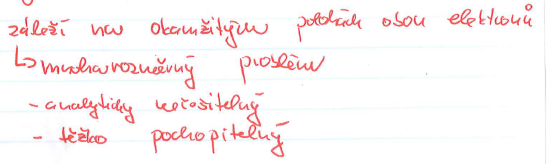 záleží na okamžitých polohách obou elektronů
↳ mnoharozměrný problém
- analyticky neřešitelný
- těžko pochopitelný